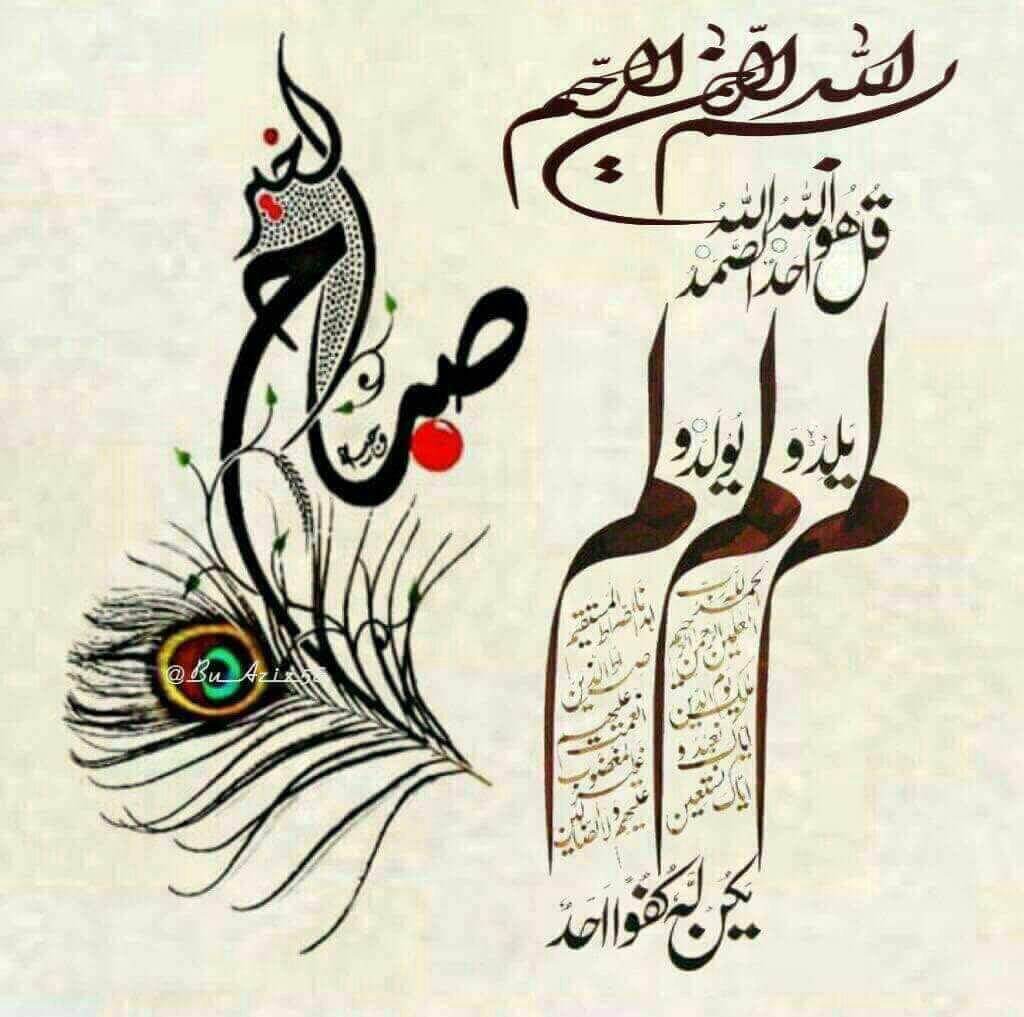 بسم الله الرحمن الرحيم
قُلْ هُوَ اللهُ أَحَدٌ اللهُ الصَّمَدُ
لم يَلِدْ وَ لم يُولَدْ وَ لم
يَكُنْ لَهُ كُفُوًا أَحَدٌ
الحمد لله رب
العلمين الرحمن الرحيم
ملك يوم الدين
اياك نعبد و
اياك نستعين
اهدنا الصراط المستقيم
صراط الذين
انعمت عليهم
غير المغضوب
عليهم ولا الضالين
صباح
الخير
@Bu_Aziz55